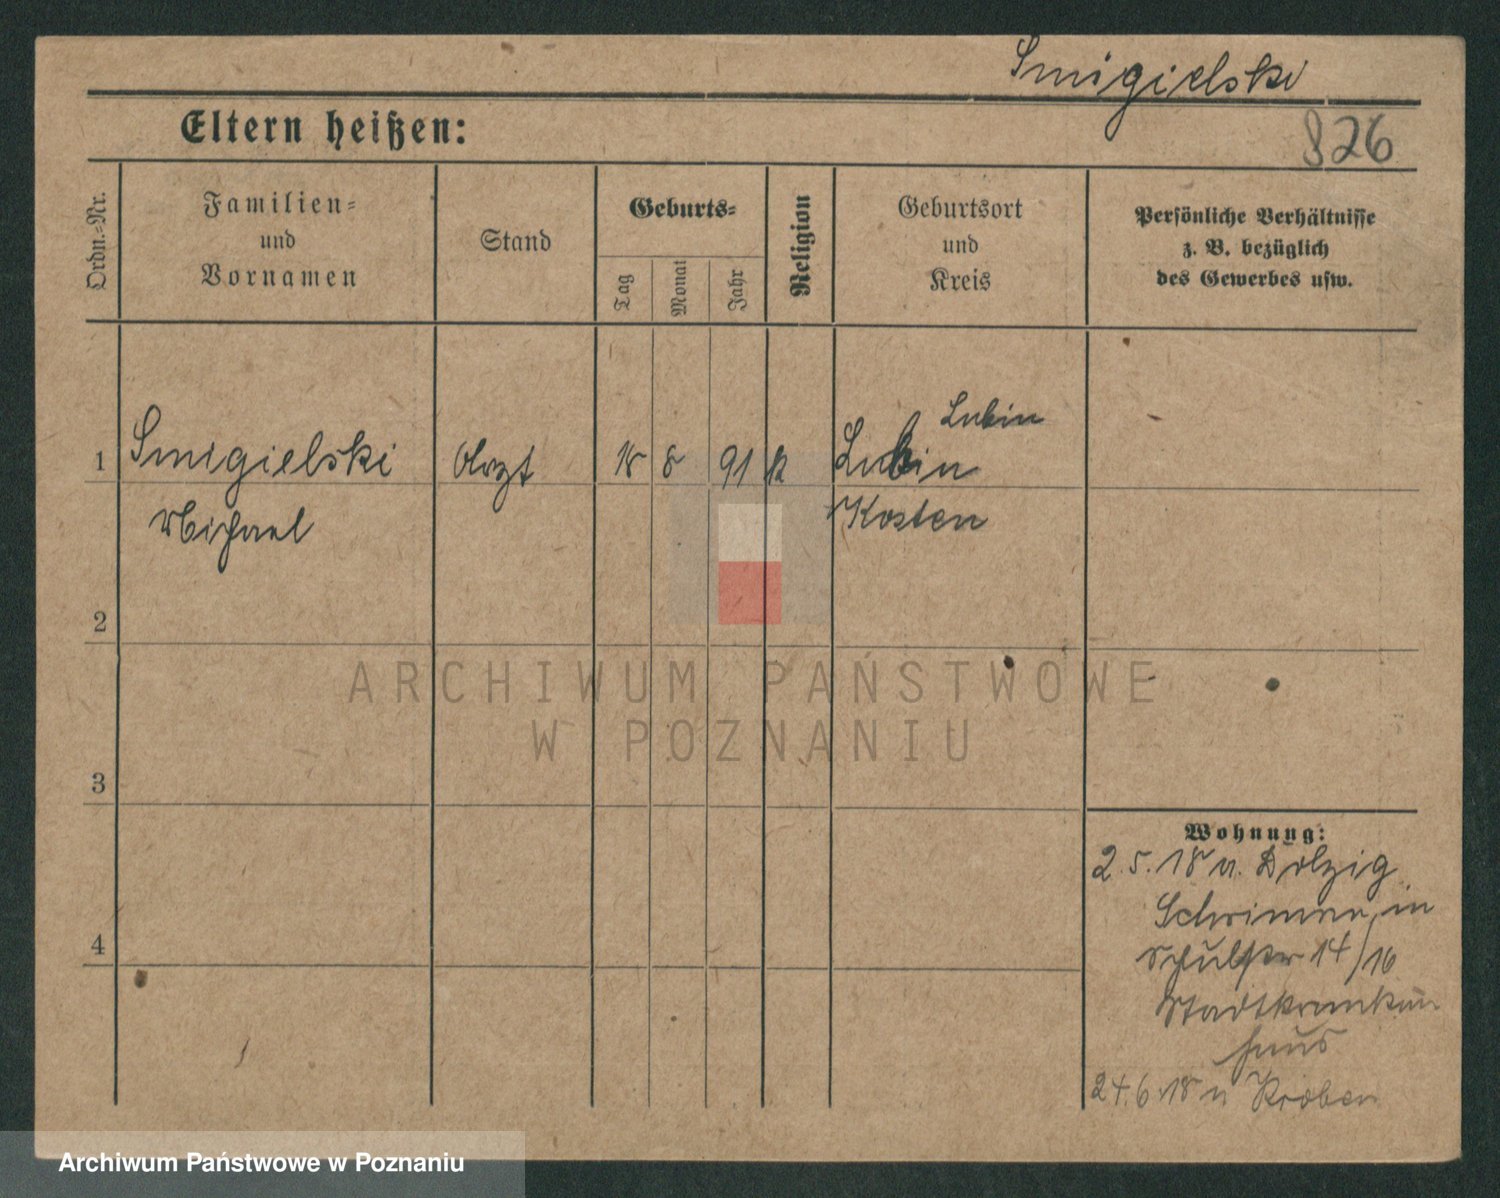 Smigielski
Eltern heißen:
826
Ordn.-Nr.
Familien-
und
Vornamen
Stand
Geburts-
Tag
Monat
Jahr
Religion
Geburtsort
und
Kreis
Persönliche Verhältnisse
z. B. bezüglich
des Gewerbes usw.
Lubin
1 Smigielski Arzt 18 8 91 k Lubin
Michael Kosten
2
3
4
Wohnung:
2.5.18 v. Dolzig
Schrimm, in
Schulstr 14/16
Stadtkranken
haus
24.6.18 n Kröben
ARCHIWUM PAŃSTWOWE
W POZNANIU
Archiwum Państwowe w Poznaniu